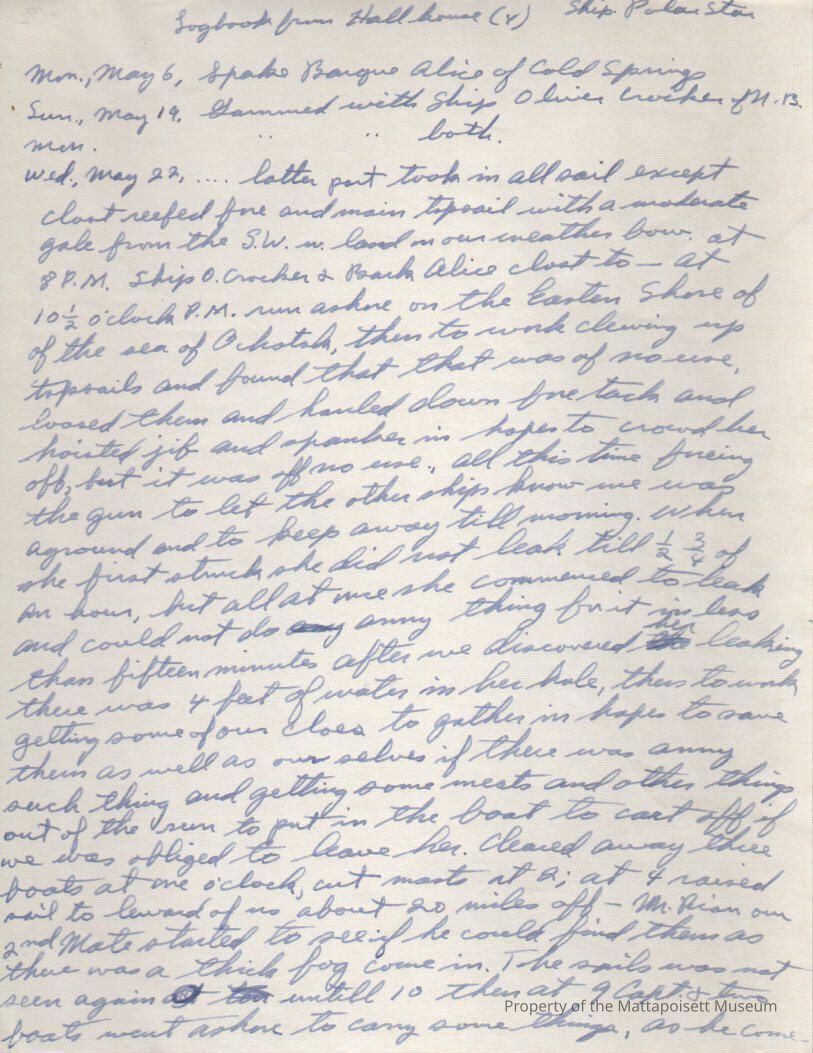 Logbook from Hall house (4) Ship Polar Star
Mon., May 6, Spoke Barque Alice of Cold Springs
Sun., May 19, Gammed with Ship Oliver Crocker of N.B.
Mon. " " both.
Wed., May 22, .... latter part took in all sail except
clost reefed fore and main topsail with a moderate
gale from the S.W. w. land on our weather bow. at
8 P.M. Ship O. Crocker & Bark Alice clost to — at
10 1/2 o'clock P.M. run ashore on the Eastern Shore of
of the sea of Ochotsk, then to work clewing up
topsails and found that that was of no use,
loosed them and hauled down fore tack and
hoisted jib and spanker in hopes to crowd her
off, but it was off no use, all this time fireing
the gun to let the other ships know we was
aground and to keep away till morning. When
she first struck she did not leak till 1/2 3/4 of
an hour, but all at once she commenced to leak
and could not do anny thing for it in less
than fifteen minutes after we discovered her leaking
there was 4 feet of water in her hole, then to work
getting some of our cloes to gather in hopes to save
them as well as our selves if there was anny
such thing and getting some meats and other things
out of the run to put in the boat to cast off if
we was obliged to leave her. Cleared away three
boats at one o'clock, cut masts at 2; at 4 raised
sail to leward of us about 20 miles off — Mr. our
2nd Mate started to see if he could find them as
there was a thick fog come in. The sails was not
seen again untill 10 then at 9 Capt. & two
boats went ashore to carry some things, as he come-
Property of the Mattapoisett Museum